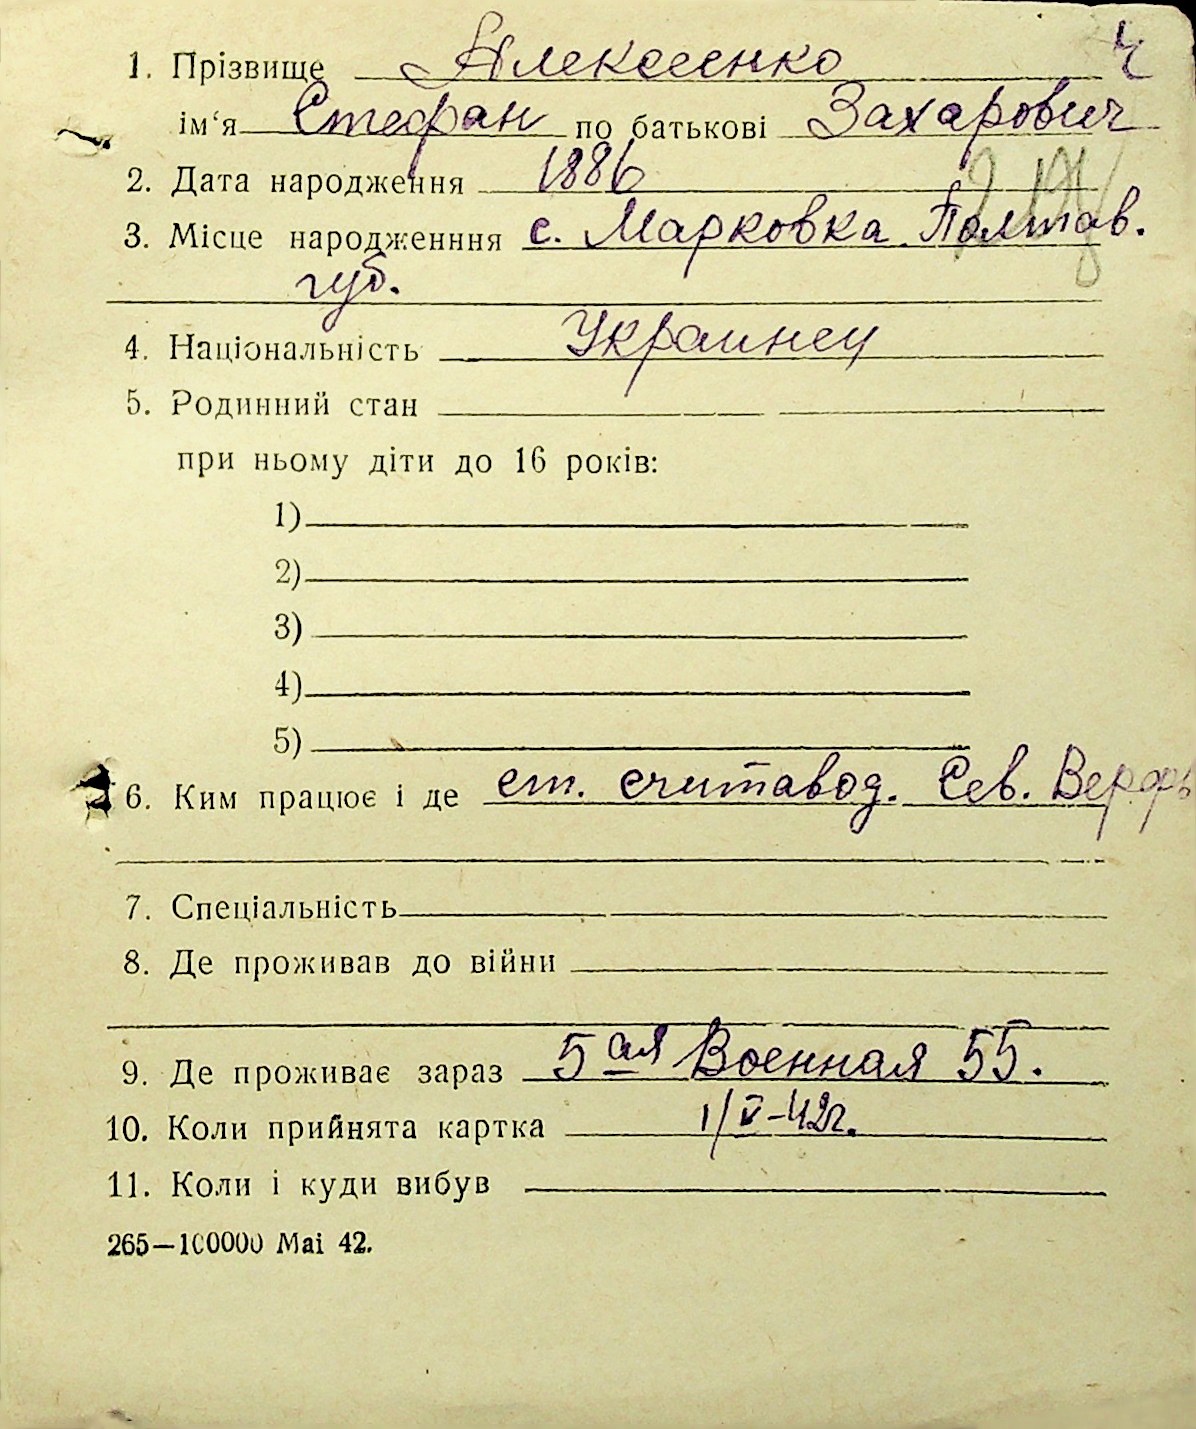 1. Прізвище Алексеенко Ч
ім‘я Стефан по батькові Захарович
2. Дата народження 1886
3. Місце народженння с. Марковка Полтав.
губ.
4. Національність Украинец
5. Родинний стан
при ньому діти до 16 років:
1)
2)
3)
4)
5)
6. Ким працює і де ст. считавод. Сев. Верфь
7. Спеціальність
8. Де проживав до війни
9. Де проживає зараз 5ая Военная 55.
10. Коли прийнята картка 1/V-42г.
11. Коли і куди вибув
265—100000 Mai 42.